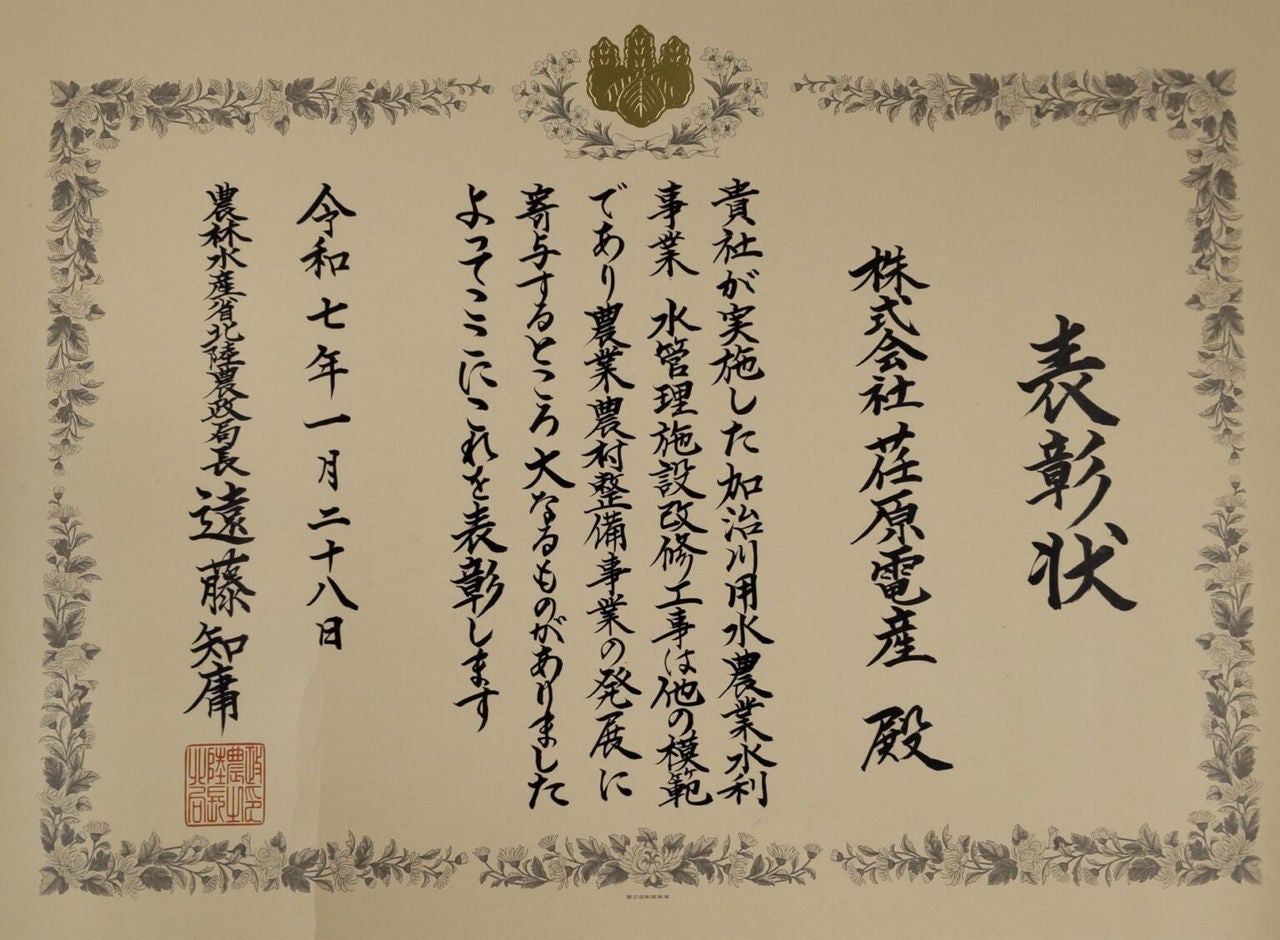 表彰状
株式会社 荏原電産 殿
貴社が実施した加治川用水農業水利
事業 水管理施設改修工事は他の模範
であり農業農村整備事業の発展に
寄与するところ大なるものがありました
よってここにこれを表彰します
令和七年一月二十八日
農林水産省北陸農政局長 遠藤知庸